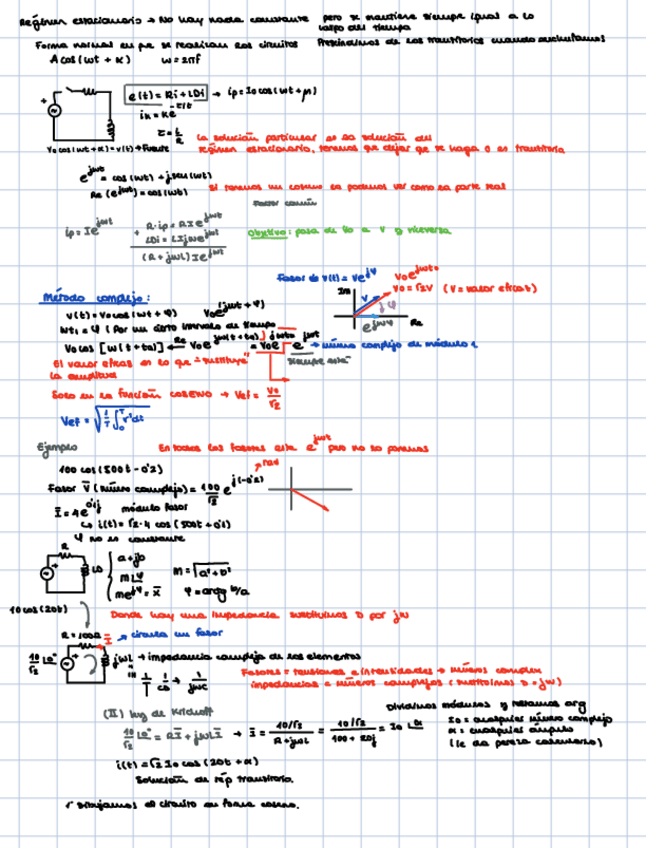 Régimen estacionario → No hay nada constante pero se mantiene siempre igual a lo largo del tiempo
Forma normal en que se realizan los circuitos Prescindimos de los transitorios cuando
A cos(ωt + α) ω = 2πf
e(t) = Ri + LDi → ip = I0 cos(ωt + β)
in = Ke^-t/τ
τ = L/R
V0 cos(ωt + α) = v(t) → Fuente
La solución particular es la solución del
régimen estacionario, tenemos que dejar que se haga 0 es transitoria
e^jωt = cos(ωt) + j sen(ωt)
Re(e^jωt) = cos(ωt)
Si tenemos un coseno la podemos ver como la parte real
Factor común
ip = I e^jωt
+ R·ip = R I e^jωt
LDi = L I jω e^jωt
(R + jωL) I e^jωt
Objetivo: pasar de I0 a V y viceversa
Fasor de v(t) = V e^jφ
V0 e^jωt0
V0 = √2 V (V = valor eficaz)
Im
V
φ
Re
Método complejo:
v(t) = V0 cos(ωt + φ) V0 e^j(ωt + φ)
ωt1 = φ (Por un cierto intervalo de tiempo
→ número complejo de módulo 1
siempre está
El valor eficaz es lo que "sustituye"
la amplitud
Solo en la función coseno → Vef = V0/√2
Vef = √(1/T ∫₀ᵀ v²dt)
Ejemplo
En todos los fasores está e^jωt pero no lo ponemos
100 cos(500t - 0'2)
rad
Fasor V̄ (número complejo) = 100/√2 e^j(-0'2)
Ī = 4e^0'1j módulo fasor
↳ i(t) = √2·4 cos(500t + 0'1)
φ no es constante
R
LD
a + jb
m∟φ
me^jφ = x̄
m = √(a² + b²)
φ = arctg b/a
10 cos(20t)
Donde hay una impedancia sustituimos D por jω
R = 100Ω
Ī → circula un fasor
10/√2 ∟0° jωL → impedancia compleja de los elementos
1/CD → 1/jωC
Fasores = tensiones e intensidades → números complejos
impedancias = números complejos (sustituimos D = jω)
(II) Ley de Kirchoff
10/√2 ∟0° = RĪ + jωLĪ → Ī = 10/√2 / R + jωL = 10/√2 / 100 + 20j = I0 ∟α
Dividimos módulos y restamos arg
I0 = cualquier número complejo
α = cualquier ángulo
(le da pereza calcularlo)
i(t) = √2 I0 cos(20t + α)
Solución de rép transitorio.
Dibujamos el circuito en forma coseno.